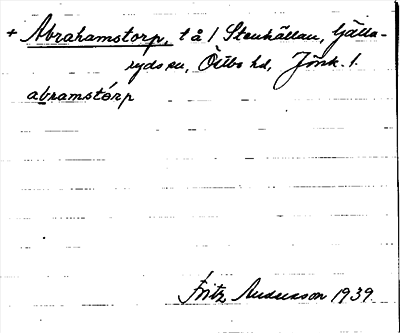 + Abrahamstorp, t å 1 Stenhällan, Gälla-
ryds sn, Östbo hd, Jönk. l.
abramstórp
Fritz Andersson 1939.